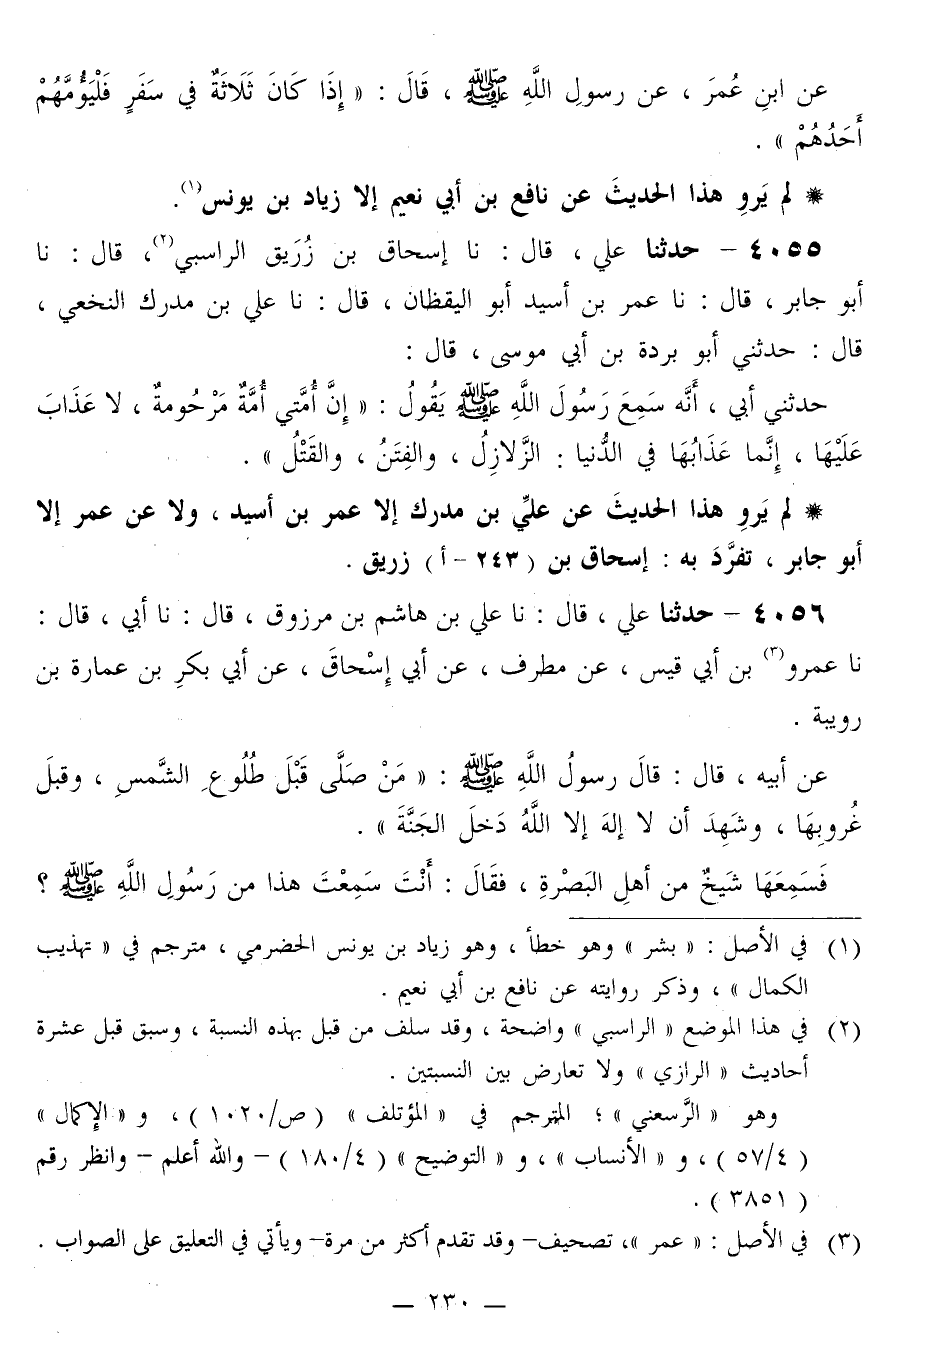 عن ابنِ عُمرَ ، عن رسولِ اللَّهِ ﷺ ، قَالَ : « إِذَا كَانَ ثَلَاثَةٌ في سَفَرٍ فَلْيَؤُمَّهُمْ
أَحَدُهُمْ » .
* لم يَروِ هذا الحديثَ عن نافع بن أبي نعيم إلا زياد بن يونس(١).
٤٠٥٥ – حدثنا علي ، قال : نا إسحاق بن زُرَيق الراسبي(٢)، قال : نا
أبو جابر ، قال : نا عمر بن أسيد أبو اليقظان ، قال : نا علي بن مدرك النخعي ،
قال : حدثني أبو بردة بن أبي موسى ، قال :
حدثني أبي ، أَنَّه سَمِعَ رَسُولَ اللَّهِ ﷺ يَقُولُ : « إِنَّ أُمَّتي أُمَّةٌ مَرْحُومةٌ ، لا عَذَابَ
عَلَيْهَا ، إِنَّما عَذَابُهَا في الدُّنيا : الزَّلازِلُ ، والفِتَنُ ، والقَتْلُ » .
* لم يَروِ هذا الحديثَ عن عليِّ بن مدرك إلا عمر بن أسيد ، ولا عن عمر إلا
أبو جابر ، تفرَّدَ به : إسحاق بن ( ٢٤٣ – أ ) زريق .
٤٠٥٦ – حدثنا علي ، قال : نا علي بن هاشم بن مرزوق ، قال : نا أبي ، قال :
نا عمرو(٣) بن أبي قيس ، عن مطرف ، عن أبي إسْحاقَ ، عن أبي بكرِ بن عمارة بن
رويبة .
عن أبيه ، قال : قالَ رسولُ اللَّهِ ﷺ : « مَنْ صَلَّى قَبْلَ طُلُوعِ الشَّمسِ ، وقبلَ
غُروبِهَا ، وشَهِدَ أن لا إلهَ إلا اللَّهُ دَخلَ الجَنَّةَ » .
فَسَمِعَهَا شَيخٌ من أهلِ البَصْرةِ ، فقَالَ : أَنْتَ سَمِعْتَ هذا من رَسُولِ اللَّهِ ﷺ ؟
(١) في الأصل : « بشر » وهو خطأ ، وهو زياد بن يونس الحضرمي ، مترجم في « تهذيب
الكمال » ، وذكر روايته عن نافع بن أبي نعيم .
(٢) في هذا الموضع « الراسبي » واضحة ، وقد سلف من قبل بهذه النسبة ، وسبق قبل عشرة
أحاديث « الرازي » ولا تعارض بين النسبتين .
وهو « الرَّسعني » ؛ المترجم في « المؤتلف » ( ص/١٠٢٠ ) ، و « الإكمال »
( ٥٧/٤ ) ، و « الأنساب » ، و « التوضيح » ( ١٨٠/٤ ) – والله أعلم – وانظر رقم
( ٣٨٥١ ) .
(٣) في الأصل : « عمر »، تصحيف– وقد تقدم أكثر من مرة– ويأتي في التعليق على الصواب .
— ٢٣٠ —